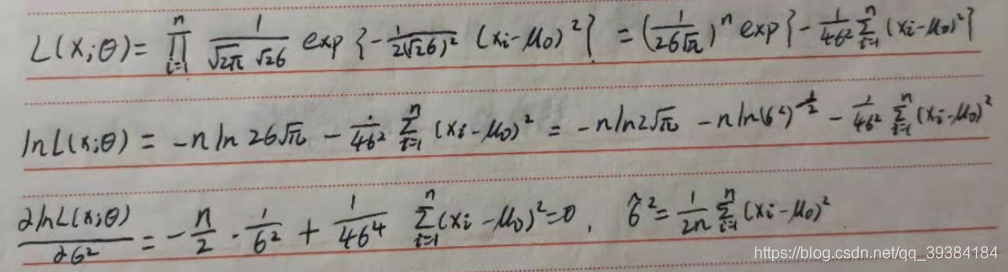 L(x;θ) = ∏_{i=1}^{n} 1/(√2π √2σ) exp{-1/(2(√2σ)²) (xᵢ-μ₀)²} = (1/(2σ√π))ⁿ exp{-1/(4σ²) Σ_{i=1}^{n} (xᵢ-μ₀)²}
lnL(x;θ) = -n ln 2σ√π - 1/(4σ²) Σ_{i=1}^{n} (xᵢ-μ₀)² = -n ln2√π - n ln(σ²)^{1/2} - 1/(4σ²) Σ_{i=1}^{n} (xᵢ-μ₀)²
∂lnL(x;θ)/∂σ² = -n/2 · 1/σ² + 1/(4σ⁴) Σ_{i=1}^{n} (xᵢ-μ₀)² = 0, σ̂² = 1/(2n) Σ_{i=1}^{n} (xᵢ-μ₀)²
https://blog.csdn.net/qq_39384184